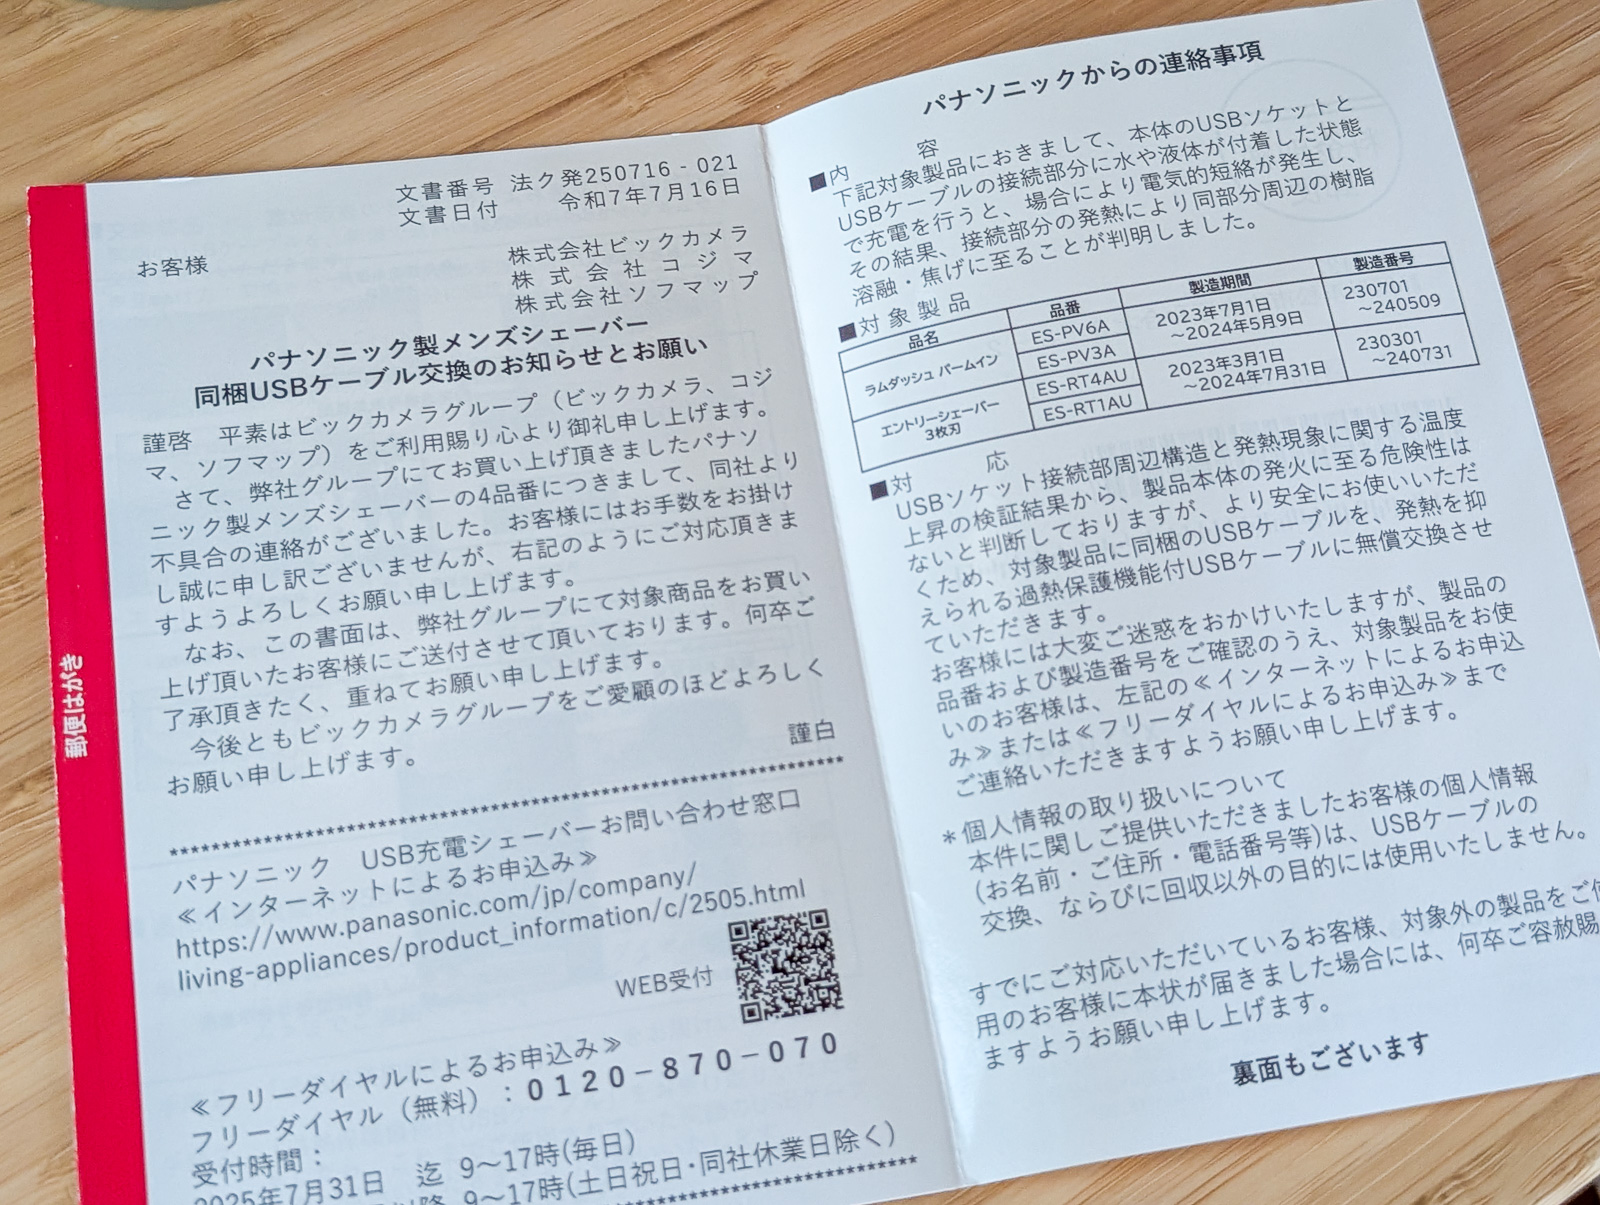 郵便はがき
文書番号 法ク発250716-021
文書日付 令和7年7月16日
お客様
株式会社ビックカメラ
株式会社コジマ
株式会社ソフマップ
パナソニック製メンズシェーバー
同梱USBケーブル交換のお知らせとお願い
謹啓 平素はビックカメラグループ（ビックカメラ、コジ
マ、ソフマップ）をご利用賜り心より御礼申し上げます。
さて、弊社グループにてお買い上げ頂きましたパナソ
ニック製メンズシェーバーの4品番につきまして、同社より
不具合の連絡がございました。お客様にはお手数をお掛け
し誠に申し訳ございませんが、右記のようにご対応頂きま
すようよろしくお願い申し上げます。
なお、この書面は、弊社グループにて対象商品をお買い
上げ頂いたお客様にご送付させて頂いております。何卒ご
了承頂きたく、重ねてお願い申し上げます。
今後ともビックカメラグループをご愛顧のほどよろしく
お願い申し上げます。
謹白
****************************************************
パナソニック USB充電シェーバーお問い合わせ窓口
≪インターネットによるお申込み≫
https://www.panasonic.com/jp/company/
living-appliances/product_information/c/2505.html
WEB受付
≪フリーダイヤルによるお申込み≫
フリーダイヤル（無料）：0120-870-070
受付時間：
2025年7月31日 迄 9～17時(毎日)
以降 9～17時(土日祝日・同社休業日除く)
パナソニックからの連絡事項
■内 容
下記対象製品におきまして、本体のUSBソケットと
USBケーブルの接続部分に水や液体が付着した状態
で充電を行うと、場合により電気的短絡が発生し、
その結果、接続部分の発熱により同部分周辺の樹脂
溶融・焦げに至ることが判明しました。
■対象製品
品名 品番 製造期間 製造番号
ラムダッシュ パームイン ES-PV6A ES-PV3A 2023年7月1日～2024年5月9日 230701～240509
エントリーシェーバー3枚刃 ES-RT4AU ES-RT1AU 2023年3月1日～2024年7月31日 230301～240731
■対 応
USBソケット接続部周辺構造と発熱現象に関する温度
上昇の検証結果から、製品本体の発火に至る危険性は
ないと判断しておりますが、より安全にお使いいただ
くため、対象製品に同梱のUSBケーブルを、発熱を抑
えられる過熱保護機能付USBケーブルに無償交換させ
ていただきます。
お客様には大変ご迷惑をおかけいたしますが、製品の
品番および製造番号をご確認のうえ、対象製品をお使
いのお客様は、左記の≪インターネットによるお申込
み≫または≪フリーダイヤルによるお申込み≫まで
ご連絡いただきますようお願い申し上げます。
＊個人情報の取り扱いについて
本件に関しご提供いただきましたお客様の個人情報
（お名前・ご住所・電話番号等)は、USBケーブルの
交換、ならびに回収以外の目的には使用いたしません。
すでにご対応いただいているお客様、対象外の製品をご使
用のお客様に本状が届きました場合には、何卒ご容赦賜
ますようお願い申し上げます。
裏面もございます